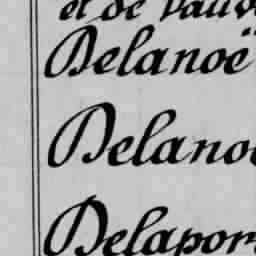 et de
Delanoë
Delano
Delapor